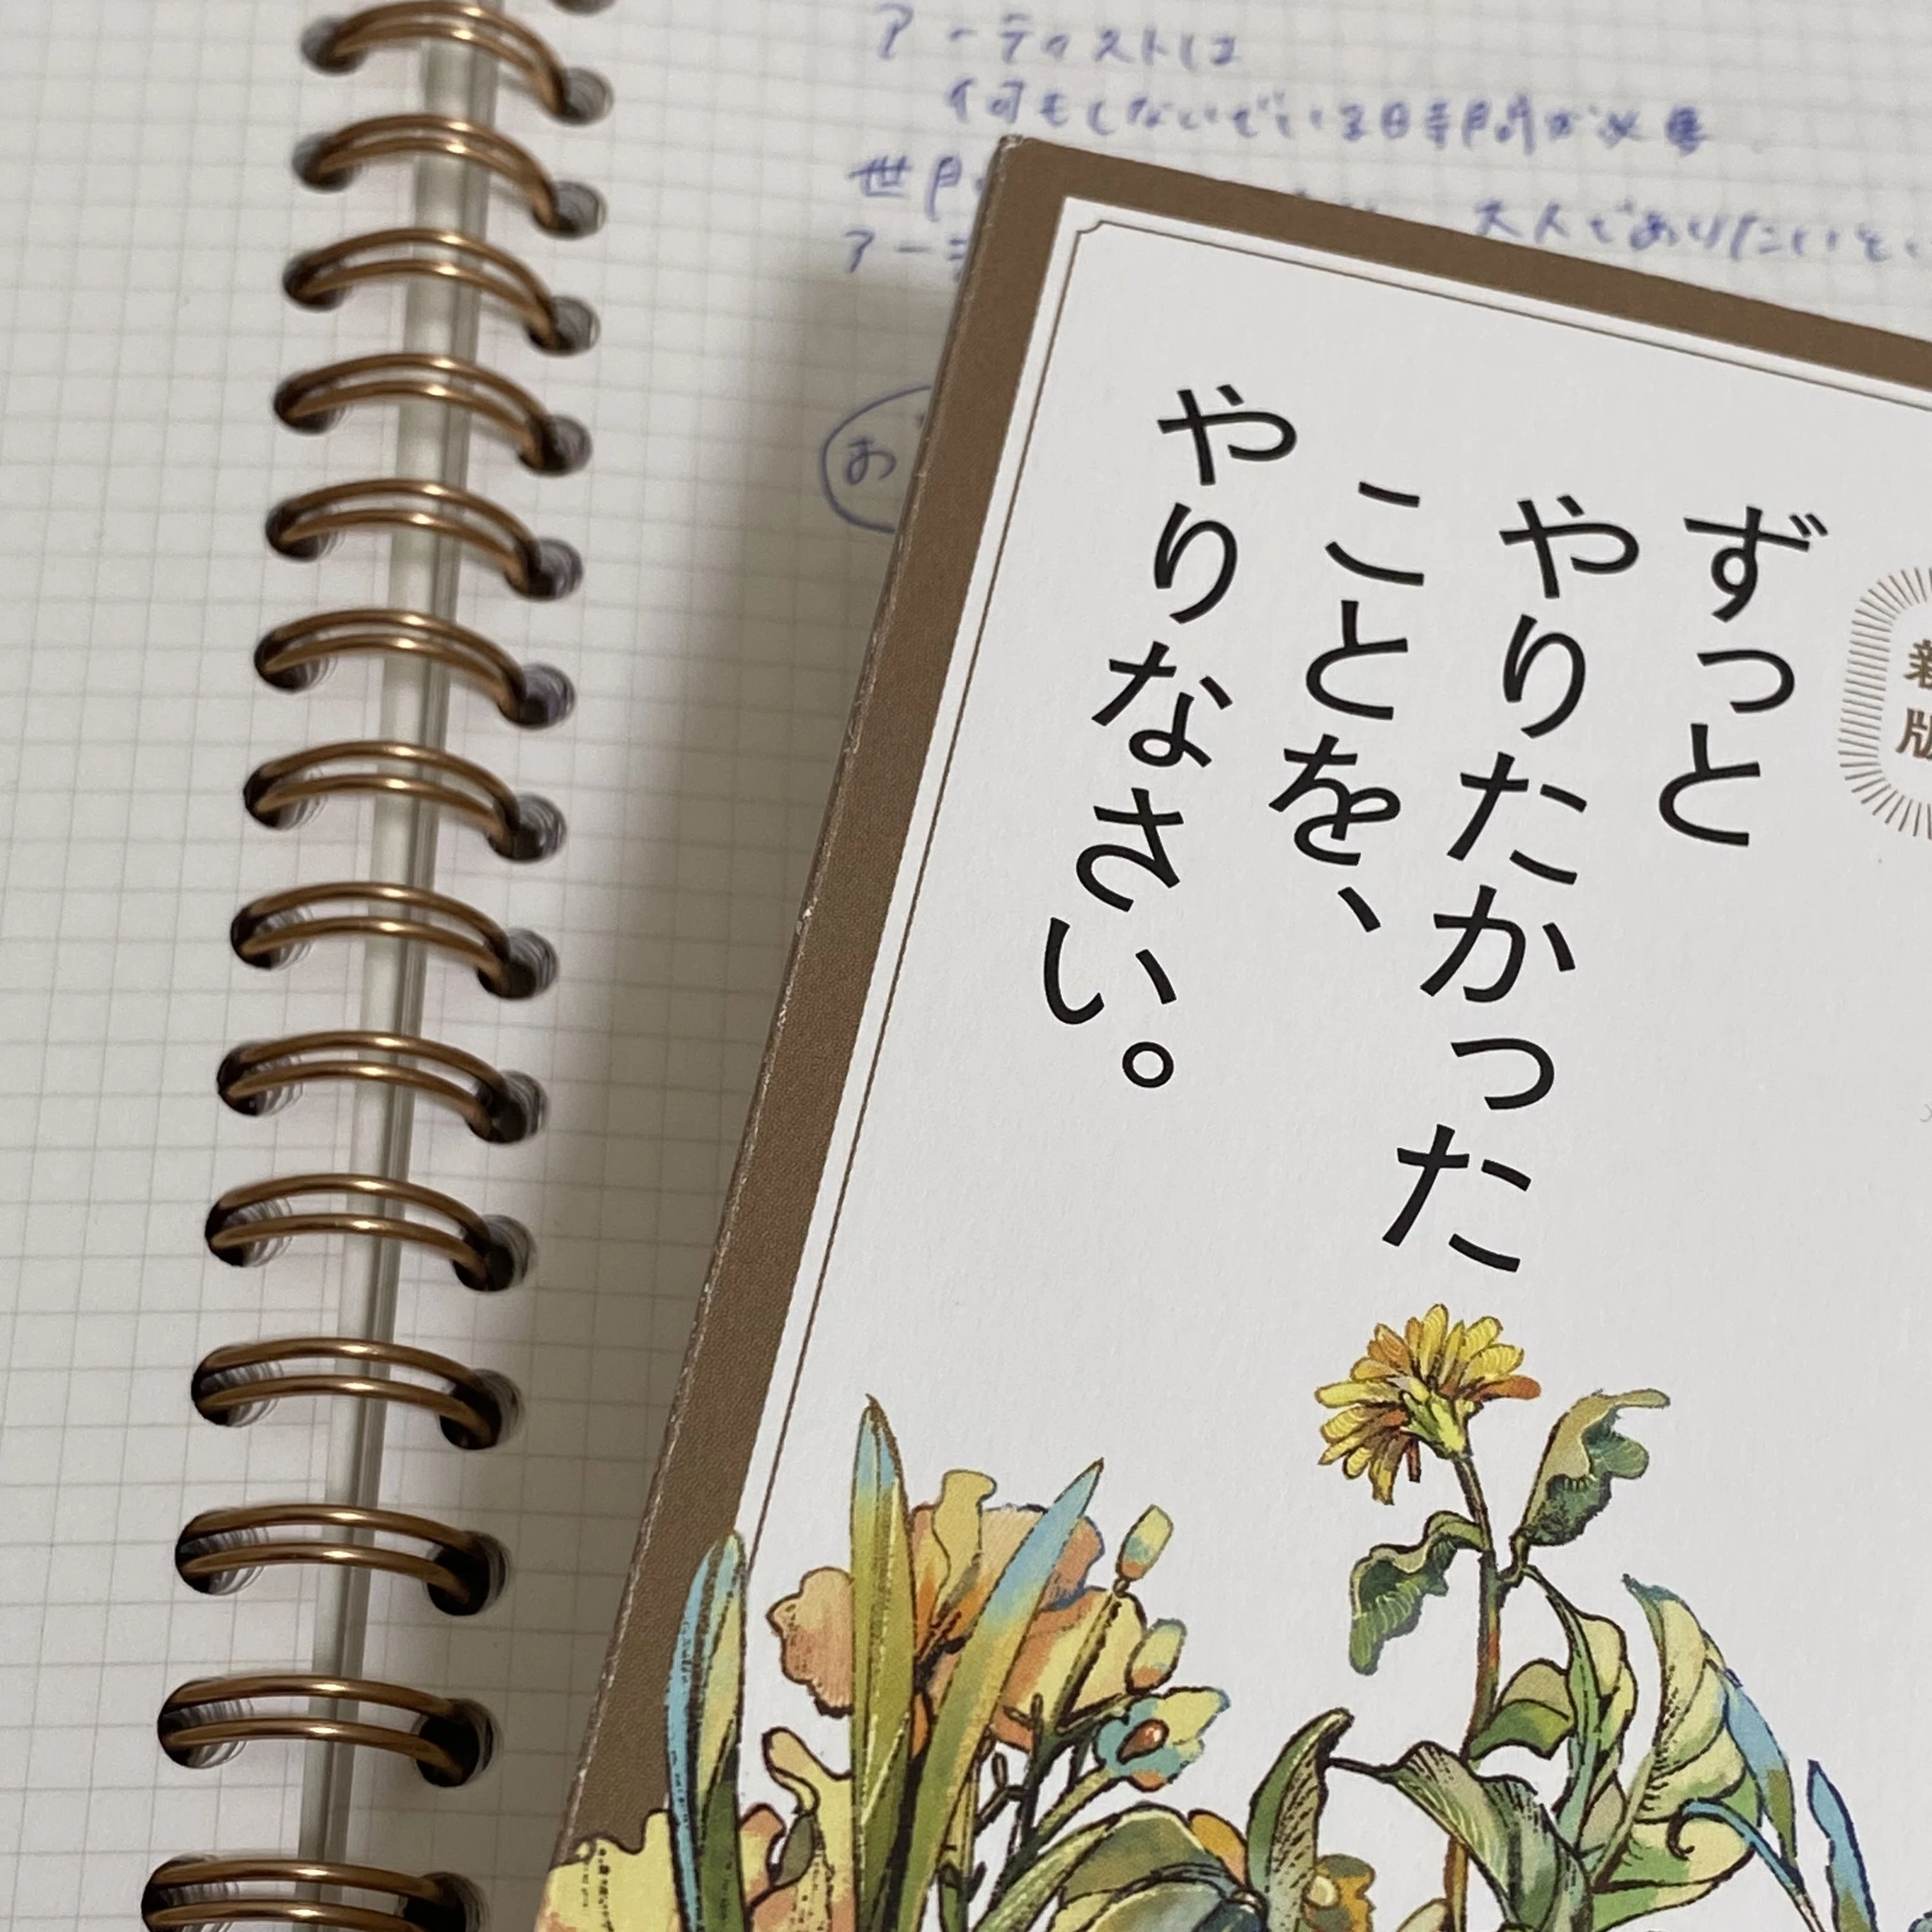 アーティストは
何もしないでいる時間が必要
世間
大人でありたいと
アーテ
お
新版
ずっと
やりたかった
ことを、
やりなさい。